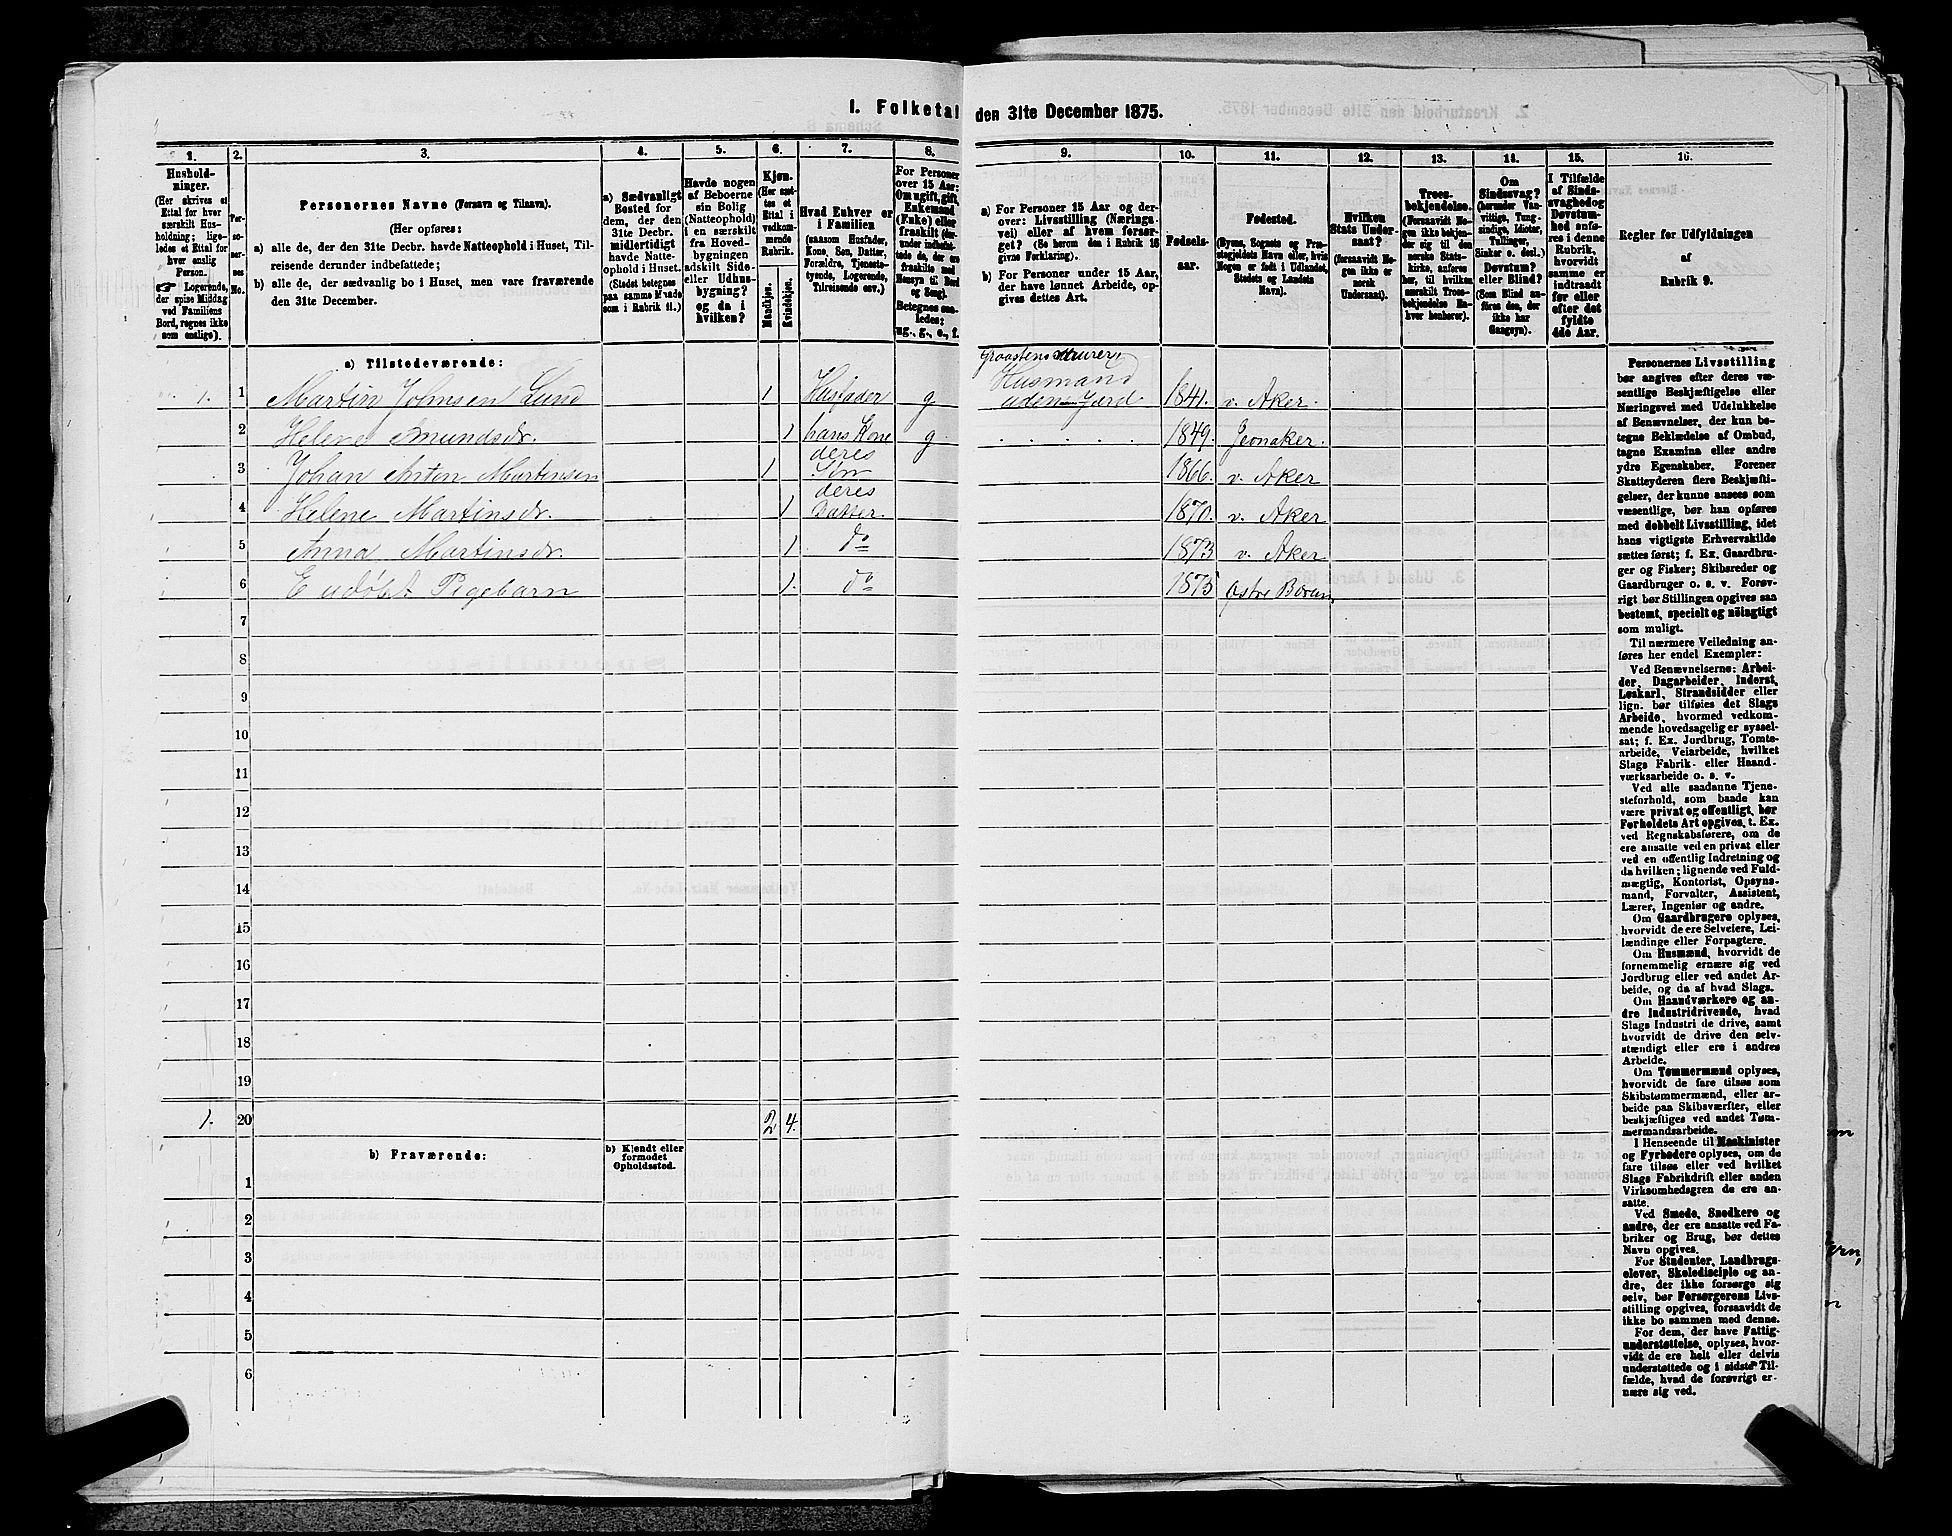 1. Folketal den 31te December 1875.
1. 2. 3. 4. 5. 6. 7. 8. 9. 10. 11. 12. 13. 14. 15. 16.
Hushold-
ninger.
(Her skrives et
Ettal for hver
særskilt Hus-
holdning; lige-
ledes et Ettal for
hver enslig
Person.
☞ Logerende,
der spise Middag
ved Familiens
Bord, regnes ikke
som enslige).
Per-
so-
ner-
nes
No.
Personernes Navne (Fornavn og Tilnavn).
(Her opføres:
a) alle de, der den 31te Decbr. havde Natteophold i Huset, Til-
reisende derunder indbefattede;
b) alle de, der sædvanlig bo i Huset, men vare fraværende
den 31te December.
a) Sædvanligt
Bosted for
dem, der den
31te Decbr.
midlertidigt
havde Natte-
ophold i Huset.
(Stedet betegnes
paa samme Maade
som i Rubrik 11.)
Havde nogen
af Beboerne
sin Bolig
(Natteophold)
i en særskilt
fra Hoved-
bygningen
adskilt Side-
eller Udhus-
bygning?
og da i
hvilken?
Kjøn.
(Her sæt-
tes et
Ettal i
vedkom-
mende
Rubrik.
Mandkjøn.
Kvindekjøn.
Hvad Enhver er
i Familien
(saasom Husfader,
Kone, Søn, Datter,
Forældre, Tjeneste-
tyende, Logerende,
Tilreisende osv.)
For Personer
over 15 Aar:
Om ugift, gift,
Enkemand
(Enke) eller
fraskilt (der-
under indbefat-
tede de, der ere
fraskilte med
Hensyn til Bord
og Seng).
Betegnes saa-
ledes:
ug., g., e., f.
a) For Personer 15 Aar og der-
over: Livsstilling (Nærings-
vei) eller af hvem forsør-
get? (Se herom den i Rubrik 16
givne Forklaring).
b) For Personer under 15 Aar,
der have lønnet Arbeide, op-
gives dettes Art.
Fødsels-
aar.
Fødested.
(Byens, Sognets og Præ-
stegjeldets Navn eller, hvis
Nogen er født i Udlandet,
Stedets og Landets
Navn).
Hvilken
Stats Under-
saat?
(forsaavidt No-
gen ikke er
norsk
Undersaat).
Troes-
bekjendelse.
(Forsaavidt No-
gen ikke bekjen-
der sig til den
norske Stats-
kirke, anføres
her, til hvilken
særskilt Troes-
bekjendelse En-
hver henhører).
Om
Sindssvag?
(herunder Van-
vittige, Tung-
sindige, Idioter,
Tullinger,
Sinker o. desl.)
Døvstum?
eller Blind?
(Som Blind an-
føres den, der
ikke har
Gangsyn).
I Tilfælde
af Sinds-
svaghed og
Døvstum-
hed anfø-
res i denne
Rubrik,
hvorvidt
samme er
indtraadt
før eller
efter det
fyldte
4de Aar.
Regler for Udfyldningen
af
Rubrik 9.
a) Tilstedeværende:
Graastensmurer,
Husmand
1. 1 Martin Johnsen Lund 1 Husfader g uden Jord 1841. v. Aker.
2 Helene Amundsdr. 1 hans Kone g 1849. Jevnaker.
3 Johan Anton Martinsen 1 deres Søn 1866. v. Aker
4 Helene Martinsdr. 1 deres Datter 1870. v. Aker
5 Anna Martinsdr. 1 do 1873 v. Aker
6 E udøbt Pigebarn 1. do 1875 Østre Bærum
7
8
9
10
11
12
13
14
15
16
17
18
19
1. 20 2 4.
b) Fraværende:
b) Kjendt eller
formodet
Opholdssted.
1
2
3
4
5
6
Personernes Livsstilling
bør angives efter deres væ-
sentlige Beskjæftigelse eller
Næringsvei med Udelukkelse
af Benævnelser, der kun be-
tegne Beklædelse af Ombud,
tagne Examina eller andre
ydre Egenskaber. Forener
Skatteyderen flere Beskjæfti-
gelser, der kunne ansees som
væsentlige, bør han opføres
med dobbelt Livsstilling, idet
hans vigtigste Erhvervskilde
sættes først; f. Ex. Gaardbru-
ger og Fisker; Skibsreder og
Gaardbruger o. s. v. Forøv-
rigt bør Stillingen opgives saa
bestemt, specielt og nöiagtigt
som muligt.
Til nærmere Veiledning an-
føres her endel Exempler:
Ved Benævnelserne: Arbei-
der, Dagarbeider, Inderst,
Løskarl, Strandsidder eller
lign. bør tilføies det Slags
Arbeide, hvormed vedkom-
mende hovedsagelig er syssel-
sat; f. Ex. Jordbrug, Tomte-
arbeide, Veiarbeide, hvilket
Slags Fabrik- eller Haand-
værksarbeide o. s. v.
Ved alle saadanne Tjene-
steforhold, som baade kan
være privat og offentligt, bør
Forholdets Art opgives, t. Ex.
ved Regnskabsførere, om de
ere ansatte ved en privat eller
ved en offentlig Indretning og
da hvilken; lignende ved Fuld-
mægtig, Kontorist, Opsyns-
mand, Forvalter, Assistent,
Lærer, Ingeniør og andre.
Om Gaardbrugere oplyses,
hvorvidt de ere Selveiere, Lei-
lændinge eller Forpagtere.
Om Husmænd, hvorvidt de
fornemmelig ernære sig ved
Jordbrug eller ved andet Ar-
beide, og da af hvad Slags.
Om Haandværkere og an-
dre Industridrivende, hvad
Slags Industri de drive, samt
hvorvidt de drive den selv-
stændigt eller ere i andres
Arbeide.
Om Tømmermænd oplyses,
hvorvidt de fare tilsøs som
Skibstømmermænd, eller ar-
beide paa Skibsværfter, eller
beskjæftiges ved andet Tøm-
mermandsarbeide.
I Henseende til Maskinister
og Fyrbødere oplyses, om de
fare tilsøs eller ved hvilket
Slags Fabrikdrift eller anden
Virksomhedsgren de ere an-
satte.
Ved Smede, Snedkere og
andre, der ere ansatte ved Fa-
briker og Brug, bør dettes
Navn opgives.
For Studenter, Landbrugs-
elever, Skoledisciple og an-
dre, der ikke forsørge sig
selv, bør Forsørgerens Livs-
stilling opgives, forsaavidt de
ikke bo sammen med denne.
For dem, der have Fattig-
understøttelse, oplyses, hvor-
vidt de ere helt eller delvis
understøttede og i sidste Til-
fælde, hvad de forøvrigt er-
nære sig ved.